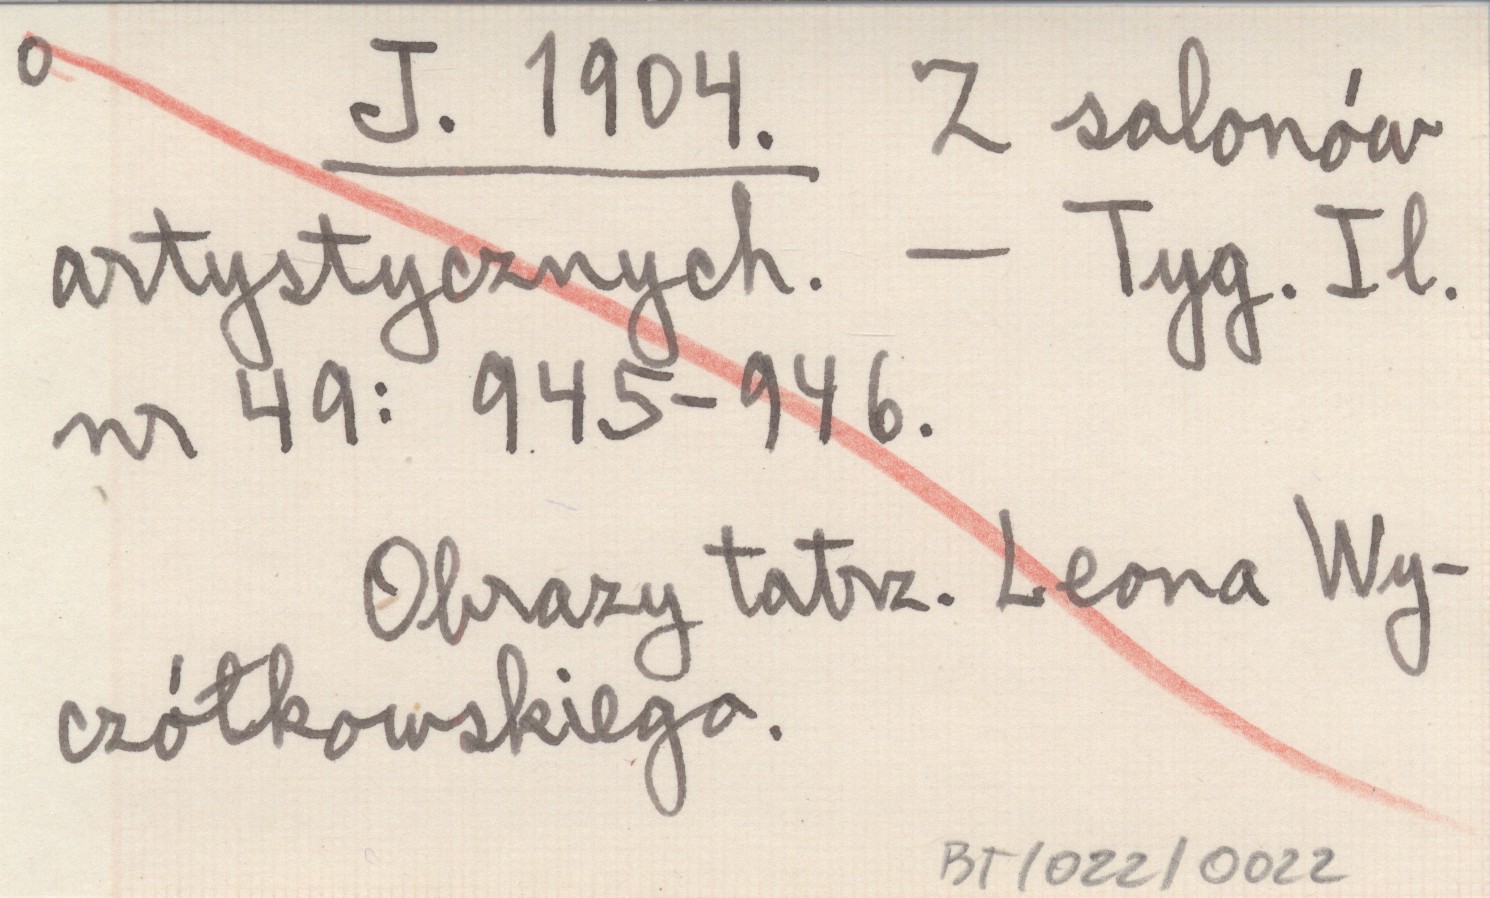 o J. 1904. Z salonów
artystycznych. — Tyg. Il.
nr 49: 945-946.
Obrazy tatrz. Leona Wy-
czółkowskiego.
BT/022/0022